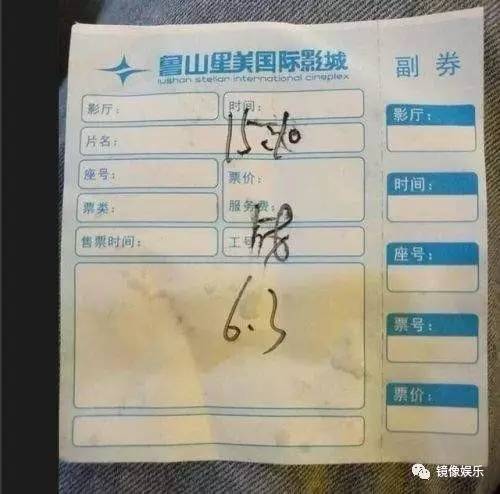 鲁山星美国际影城
lushan stellar international cineplex
副券
影厅：
时间：
片名：
15:10
座号：
票价：
票类：
服务费：
售票时间：
工号
6.3
影厅：
时间：
座号：
票号：
票价：
镜像娱乐